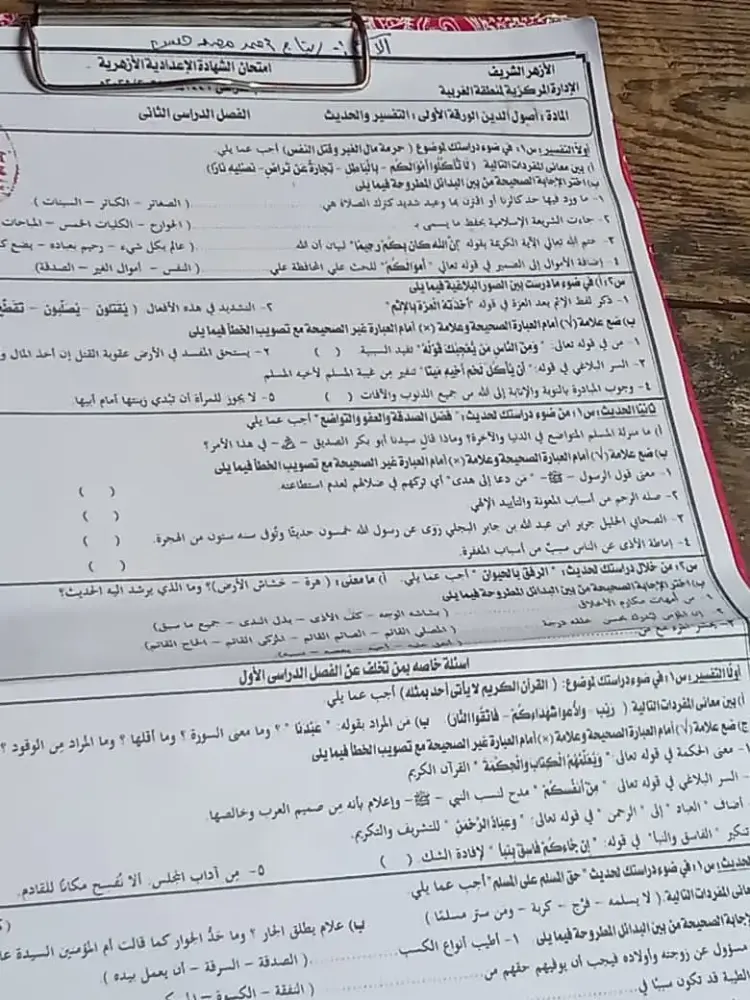 امتحان الشهادة الإعدادية الأزهرية
الأزهر الشريف
الإدارة المركزية لمنطقة الغربية
المادة : أصول الدين الورقة الأولى : التفسير والحديث الفصل الدراسى الثانى
أولاً التفسير: س١: فى ضوء دراستك لموضوع ( حرمة مال الغير وقتل النفس) أجب عما يلى.
أ) بين معانى المفردات التالية ( لا تأكلوا أموالكم – بالباطل – تجارة عن تراض – نصليه نارًا)
ب) اختر الإجابة الصحيحة من بين البدائل المطروحة فيما يلى
١- ما ورد فيها حد كالزنا أو اقترن بها وعيد شديد كترك الصلاة هي ( الصغائر – الكبائر – السيئات )
٢- جاءت الشريعة الإسلامية بحفظ ما يسمى بـ ( الجوارح – الكليات الخمس – المباحات
٣- ختم الله تعالى الآية الكريمة بقوله "إن الله كان بكم رحيما" لبيان أن الله ( عالم بكل شيء – رحيم بعباده – يضع
٤- إضافة الأموال إلى الضمير في قوله تعالى "أموالكم" للحث على المحافظة على ( النفس – أموال الغير – الصدقة)
س٢: أ) فى ضوء ما درست بين الصور البلاغية فيما يلى
١- ذكر لفظ الإثم بعد العزة في قوله "أخذته العزة بالإثم" ٢- التشديد في هذه الأفعال ( يقتلون – يصلبون – تقطع
ب) ضع علامة (√) أمام العبارة الصحيحة وعلامة (×) أمام العبارة غير الصحيحة مع تصويب الخطأ فيما يلى
١- من في قوله تعالى: "ومن الناس من يعجبك قوله" تفيد السببية. ( ) ٢- يستحق المفسد في الأرض عقوبة القتل إن أخذ المال و
٣- السر البلاغي في قوله: "أن يأكل لحم أخيه ميتا" تنفير من غيبة المسلم لأخيه المسلم
٤- وجوب المبادرة بالتوبة والإنابة إلى الله من جميع الذنوب والآفات ( ) ٥- لا يجوز للمرأة أن تبدي زينتها أمام أبيها.
ثانيًا الحديث: س١: من ضوء دراستك لحديث: "فضل الصدقة والعفو والتواضع" أجب عما يلى
أ) ما منزلة المسلم المتواضع في الدنيا والآخرة؟ وماذا قال سيدنا أبو بكر الصديق – – في هذا الأمر؟
ب) ضع علامة (√) أمام العبارة الصحيحة وعلامة (×) أمام العبارة غير الصحيحة مع تصويب الخطأ فيما يلى
١- معنى قول الرسول – ﷺ- "من دعا إلى هدى" أي تركهم في ضلالهم لعدم استطاعته. ( )
٢- صله الرحم من أسباب المعونة والتأييد الإلهي ( )
٣- الصحابي الجليل جرير ابن عبد الله بن جابر البجلي روى عن رسول الله خمسون حديثا وتوفى سنه ستون من الهجرة. ( )
٤- إماطة الأذى عن الناس سببٌ من أسباب المغفرة. ( )
س٢: من خلال دراستك لحديث: "الرفق بالحيوان" أجب عما يلى. أ) ما معنى: ( هرة – خشاش الأرض)؟ وما الذي يرشد اليه الحديث؟
ب) اختر الإجابة الصحيحة من بين البدائل المطروحة فيما يلى
١- من أمهات مكارم الأخلاق ( بشاشه الوجه – كف الأذى – بذل الندى – جميع ما سبق)
٢- إن المؤمن ليدرك بحسن خلقه درجة ( المصلي القائم – الصائم القائم – المزكى القائم – الحاج القائم)
اسئلة خاصه بمن تخلف عن الفصل الدراسى الأول
أولًا التفسير: س١: فى ضوء دراستك لموضوع: ( القرآن الكريم لا يأتى أحد بمثله) أجب عما يلى
أ) بين معانى المفردات التالية ( ريب – وادعوا شهداءكم – فاتقوا النار) ب) من المراد بقوله: "عبدنا" ؟ وما معنى السورة ؟ وما أقلها ؟ وما المراد من الوقود ؟
ج) ضع علامة (√) أمام العبارة الصحيحة وعلامة (×) أمام العبارة غير الصحيحة مع تصويب الخطأ فيما يلى
١- معنى الحكمة في قوله تعالى: "ويعلمهم الكتاب والحكمة" القرآن الكريم
السر البلاغي في قوله تعالى "من أنفسكم" مدح لنسب النبي – ﷺ- وإعلام بأنه من صميم العرب وخالصها.
أضاف "العباد" إلى "الرحمن" في قوله تعالى: "وعباد الرحمن" للتشريف والتكريم.
تنكير "الفاسق والنبا" في قوله: "إن جاءكم فاسق بنبإ" لإفادة الشك. ( ) ٥- من آداب المجلس. ألا تفسح مكانًا للقادم.
الحديث: س١: فى ضوء دراستك لحديث "حق المسلم على المسلم" أجب عما يلى.
معانى المفردات التالية: ( لا يسلمه – فرج – كربة – ومن ستر مسلمًا ) ب) علام يطلق الجار ؟ وما حدُّ الجوار كما قالت أم المؤمنين السيدة
الإجابة الصحيحة من بين البدائل المطروحة فيما يلى ١- أطيب أنواع الكسب ( الصدقة – السرقة – أن يعمل بيده )
مسؤول عن زوجته وأولاده فيجب أن يوفيهم حقهم من ( النفقة – الكسوة –
الطيبة قد تكون سببًا في